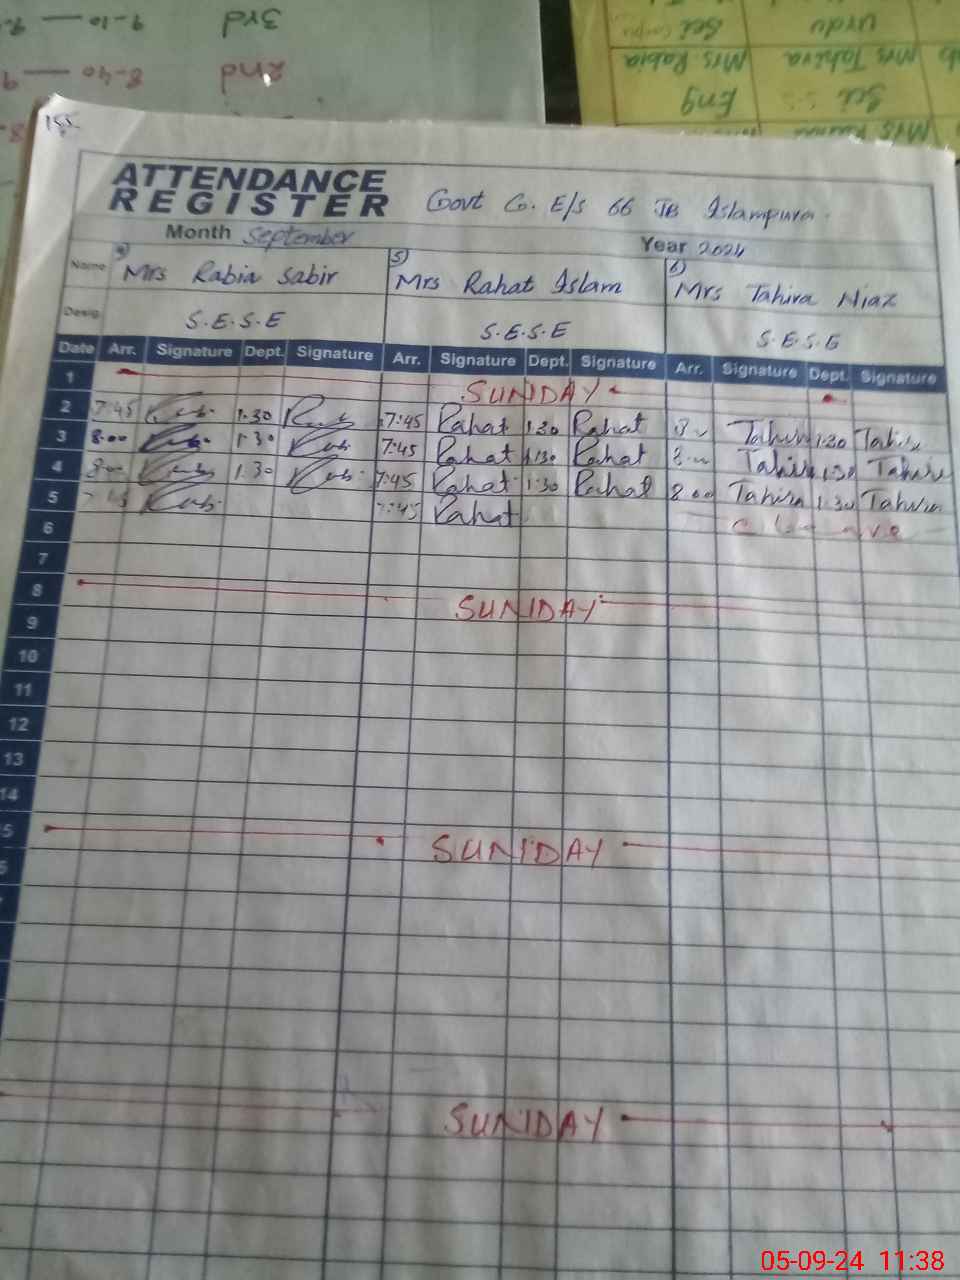 3rd 9-10
2nd 8-40 — 9
Sci Urdu
Mrs Rabia Mrs Tahira
Eng Sci
155
ATTENDANCE
REGISTER Govt Co. E/S 66 JB Islampura.
Month September Year 2024
Name 4) Mrs Rabia Sabir 5) Mrs Rahat Islam 6) Mrs Tahira Niaz
Desig. S.E.S.E S.E.S.E S.E.S.E
Date Arr. Signature Dept. Signature Arr. Signature Dept. Signature Arr. Signature Dept. Signature
1 SUNDAY
2 7:45 1:30 7:45 Rahat 1:30 Rahat 8 Tahira 1:30 Tahira
3 8:00 1:30 7:45 Rahat 1:30 Rahat 8:00 Tahira 1:30 Tahira
4 8:00 1:30 7:45 Rahat 1:30 Rahat 8:00 Tahira 1:30 Tahira
5 7:45 7:45 Rahat
6
7
8 SUNDAY
9
10
11
12
13
14
5 SUNDAY
6
SUNDAY
05-09-24 11:38